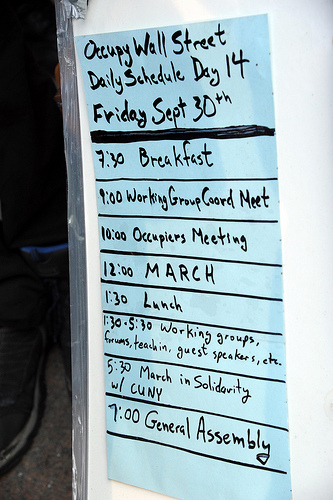 Occupy Wall Street
Daily Schedule Day 14
Friday Sept 30th
7:30 Breakfast
9:00 Working Group Coord Meet
10:00 Occupiers Meeting
12:00 MARCH
1:30 Lunch
1:30-5:30 Working groups,
forums, teachin, guest speakers, etc.
5:30 March in Solidarity
w/ CUNY
7:00 General Assembly